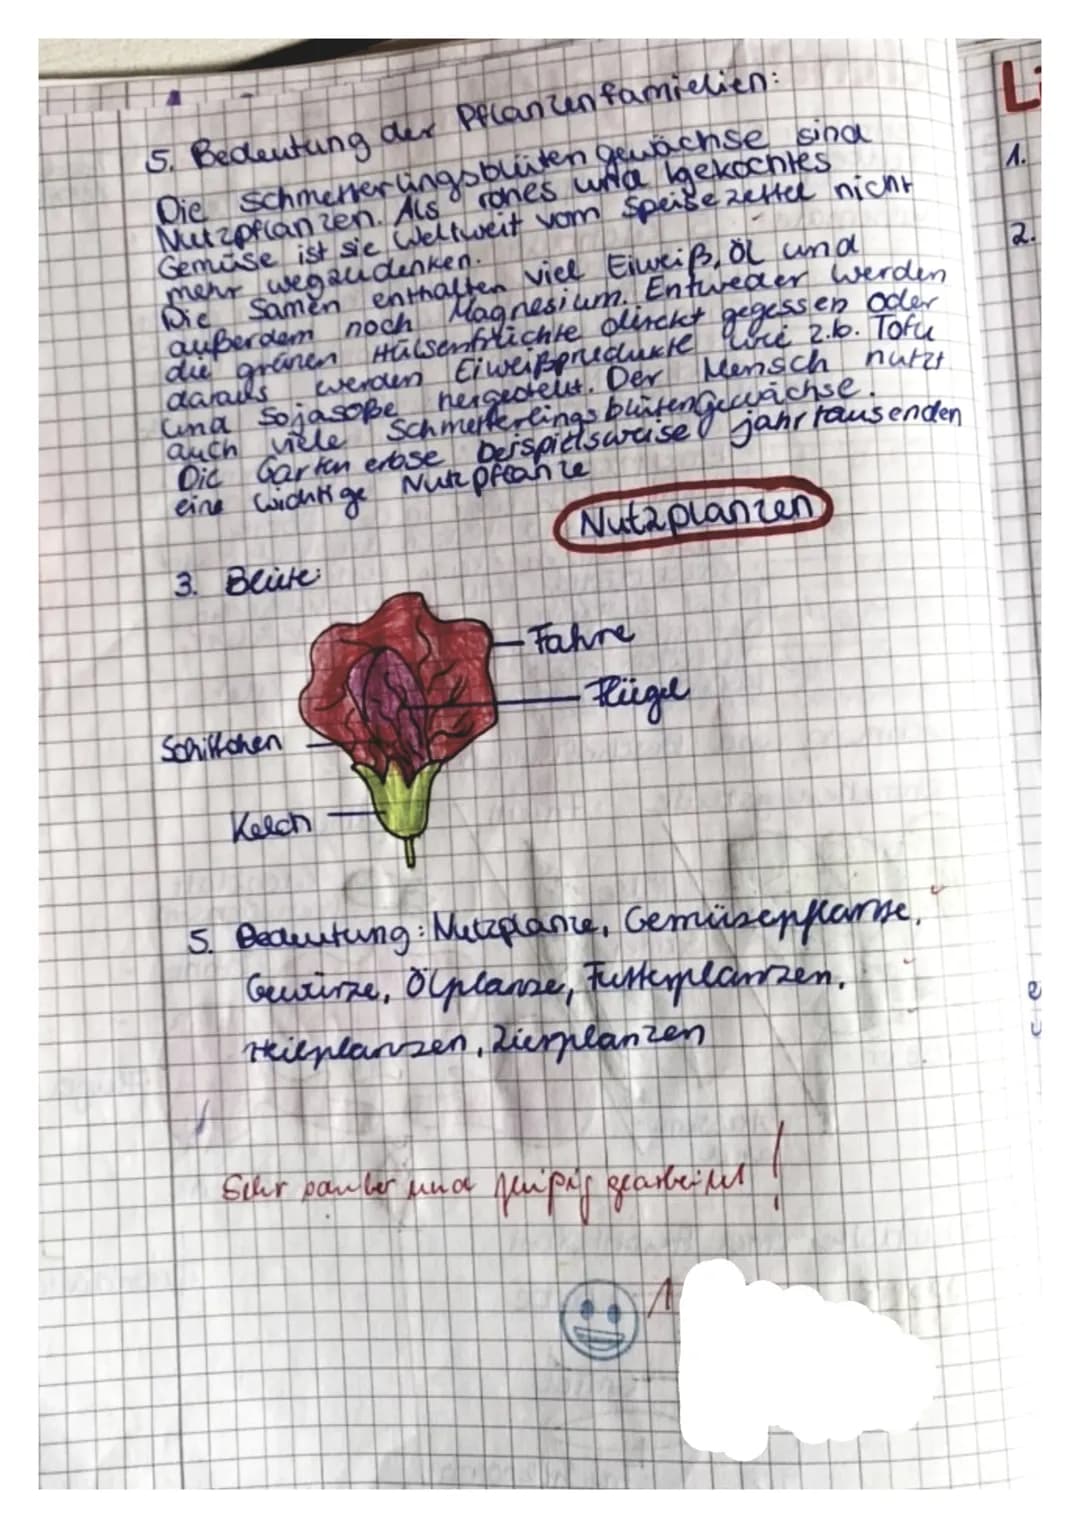 5. Bedeutung der Pflanzenfamielien:
Die Schmetterlingsblütengewächse sind
Nutzpflanzen. Als rohes und gekochtes
Gemüse ist sie Weltweit vom Speisezettel nicht
mehr wegzudenken.
Die Samen enthalten viel Eiweiß, Öl und
außerdem noch Magnesium. Entweder werden
die grünen Hülsenfrüchte direkt gegessen oder
daraus werden Eiweißpredukte wie z.b. Tofu
und Sojasoße hergestellt. Der Mensch nutzt
auch viele Schmetterlingsblütengewächse.
Die Gartenerbse beispielsweise jahrtausenden
eine wichtige Nutzpflanze
Nutzplanzen
3. Blüte:
Fahne
Flügel
Schiffchen
Kelch
5. Bedeutung: Nutzplanze, Gemüsenpflanze,
Gewürze, Ölplanze, Futterplanzen,
Heilplanzen, Zierplanzen
Sehr sauber und fleißig gearbeitet!
1
Li
1.
2.